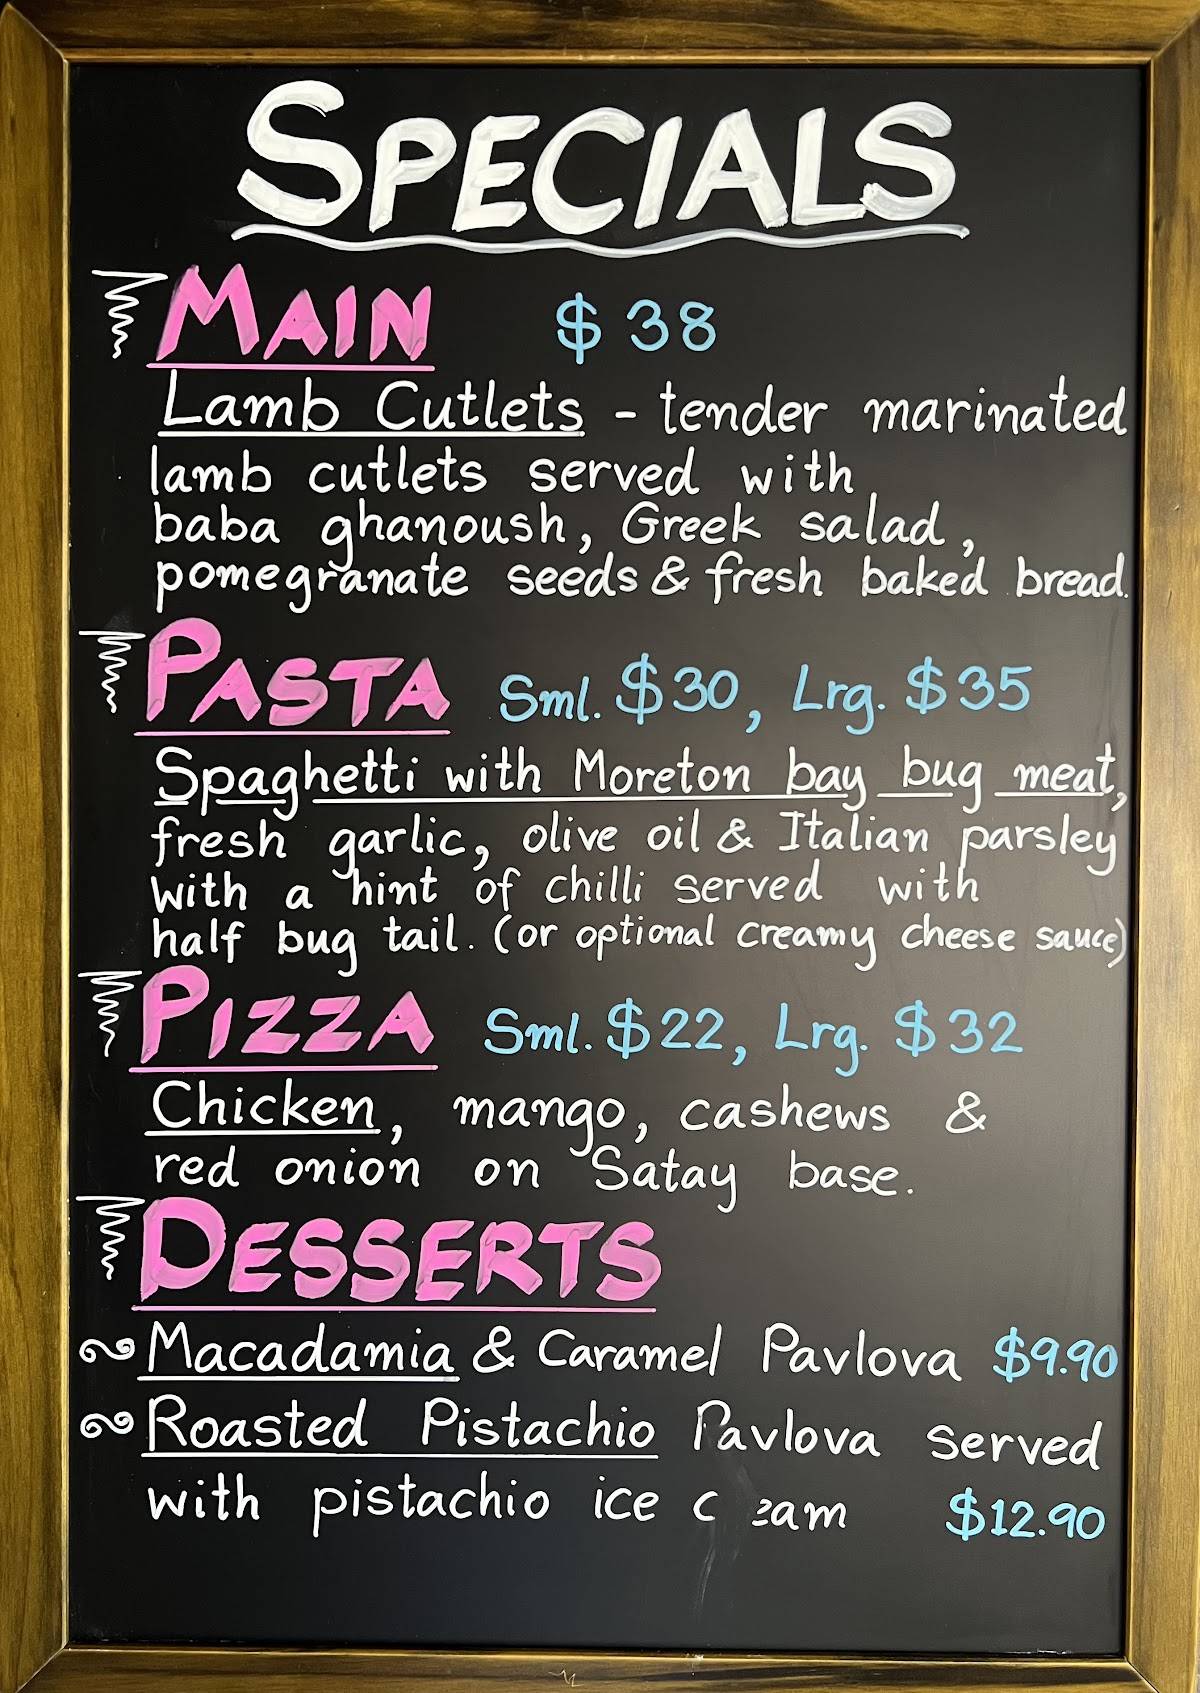 SPECIALS
MAIN $38
Lamb Cutlets - tender marinated
lamb cutlets served with
baba ghanoush, Greek salad,
pomegranate seeds & fresh baked bread.
PASTA Sml. $30, Lrg. $35
Spaghetti with Moreton bay bug meat,
fresh garlic, olive oil & Italian parsley
with a hint of chilli served with
half bug tail. (or optional creamy cheese sauce)
PIZZA Sml. $22, Lrg. $32
Chicken, mango, cashews &
red onion on Satay base.
DESSERTS
Macadamia & Caramel Pavlova $9.90
Roasted Pistachio Pavlova served
with pistachio ice c eam $12.90